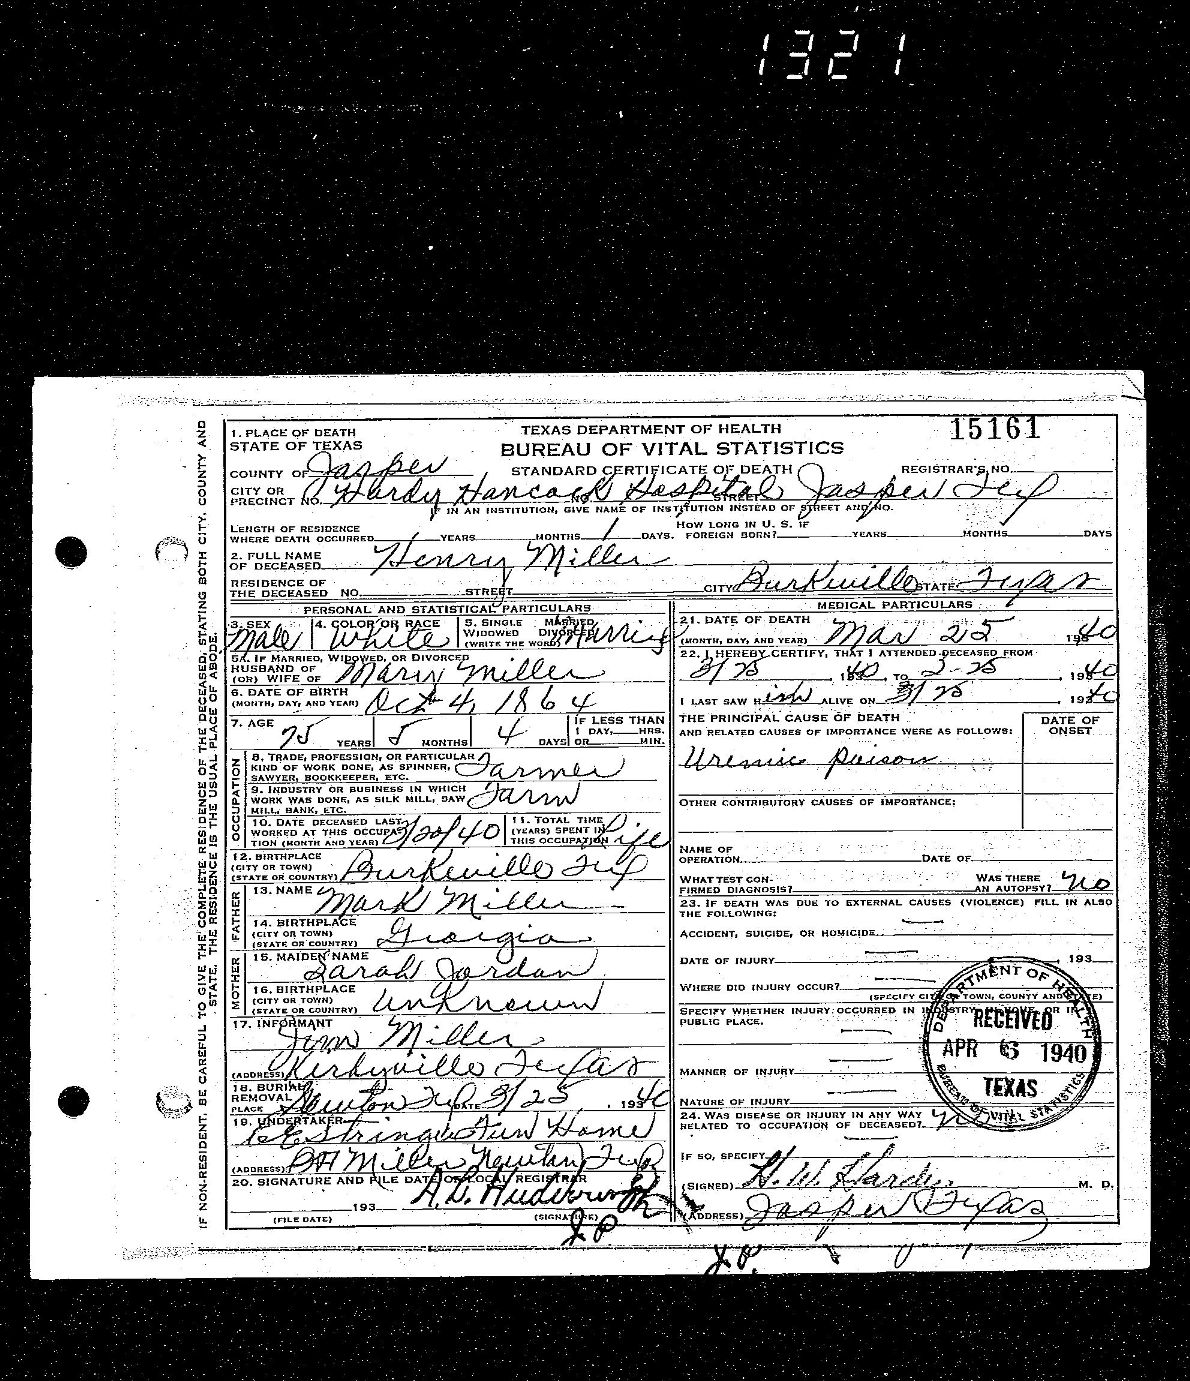 1321
15161
1. PLACE OF DEATH
STATE OF TEXAS
TEXAS DEPARTMENT OF HEALTH
BUREAU OF VITAL STATISTICS
STANDARD CERTIFICATE OF DEATH
COUNTY OF Jasper
REGISTRAR'S NO.
CITY OR PRECINCT NO. Hardy Hancock Hospital STREET Jasper Tex
IF IN AN INSTITUTION, GIVE NAME OF INSTITUTION INSTEAD OF STREET AND NO.
LENGTH OF RESIDENCE WHERE DEATH OCCURRED YEARS MONTHS 1 DAYS. HOW LONG IN U. S. IF FOREIGN BORN? YEARS MONTHS DAYS
2. FULL NAME OF DECEASED Henry Miller
RESIDENCE OF THE DECEASED NO. STREET CITY Burkeville STATE Texas
PERSONAL AND STATISTICAL PARTICULARS
3. SEX Male
4. COLOR OR RACE White
5. SINGLE MARRIED WIDOWED DIVORCED (WRITE THE WORD) Married
5A. IF MARRIED, WIDOWED, OR DIVORCED
HUSBAND OF (OR) WIFE OF Mary Miller
6. DATE OF BIRTH (MONTH, DAY, AND YEAR) Oct 4, 1864
7. AGE 75 YEARS 5 MONTHS 4 DAYS IF LESS THAN 1 DAY, HRS. OR MIN.
OCCUPATION
8. TRADE, PROFESSION, OR PARTICULAR KIND OF WORK DONE, AS SPINNER, SAWYER, BOOKKEEPER, ETC. Farmer
9. INDUSTRY OR BUSINESS IN WHICH WORK WAS DONE, AS SILK MILL, SAW MILL, BANK, ETC. Farm
10. DATE DECEASED LAST WORKED AT THIS OCCUPATION (MONTH AND YEAR) 3/20/40
11. TOTAL TIME (YEARS) SPENT IN THIS OCCUPATION Life
12. BIRTHPLACE (CITY OR TOWN) (STATE OR COUNTRY) Burkeville Tex
FATHER
13. NAME Mark Miller
14. BIRTHPLACE (CITY OR TOWN) (STATE OR COUNTRY) Georgia
MOTHER
15. MAIDEN NAME Sarah Jordan
16. BIRTHPLACE (CITY OR TOWN) (STATE OR COUNTRY) Unknown
17. INFORMANT Jim Miller
(ADDRESS) Kirbyville Texas
18. BURIAL REMOVAL PLACE Newton Tex DATE 3/25, 1940
19. UNDERTAKER CE Stringer Fun Home
(ADDRESS) BH Miller Newton Tex
20. SIGNATURE AND FILE DATE OF LOCAL REGISTRAR
193
(FILE DATE) (SIGNATURE)
J.P.
MEDICAL PARTICULARS
21. DATE OF DEATH (MONTH, DAY, AND YEAR) Mar 25 1940
22. I HEREBY CERTIFY, THAT I ATTENDED DECEASED FROM
3/25 1940 TO 2-25, 1940
I LAST SAW Him ALIVE ON 3/25, 1940
THE PRINCIPAL CAUSE OF DEATH AND RELATED CAUSES OF IMPORTANCE WERE AS FOLLOWS:
DATE OF ONSET
Uremic poison
OTHER CONTRIBUTORY CAUSES OF IMPORTANCE:
NAME OF OPERATION DATE OF
WHAT TEST CONFIRMED DIAGNOSIS? WAS THERE AN AUTOPSY? No
23. IF DEATH WAS DUE TO EXTERNAL CAUSES (VIOLENCE) FILL IN ALSO THE FOLLOWING:
ACCIDENT, SUICIDE, OR HOMICIDE
DATE OF INJURY , 193
WHERE DID INJURY OCCUR?
(SPECIFY CITY OR TOWN, COUNTY AND STATE)
SPECIFY WHETHER INJURY OCCURRED IN INDUSTRY, HOME, OR IN PUBLIC PLACE.
MANNER OF INJURY
NATURE OF INJURY
24. WAS DISEASE OR INJURY IN ANY WAY RELATED TO OCCUPATION OF DECEASED? No
IF SO, SPECIFY
(SIGNED) H. W. Hardy M. D.
(ADDRESS) Jasper Texas
DEPARTMENT OF HEALTH
RECEIVED
APR 6 1940
TEXAS
BUREAU OF VITAL STATISTICS
J.P.
IF NON-RESIDENT, BE CAREFUL TO GIVE THE COMPLETE RESIDENCE OF THE DECEASED, STATING BOTH CITY, COUNTY AND
STATE. THE RESIDENCE IS THE USUAL PLACE OF ABODE.